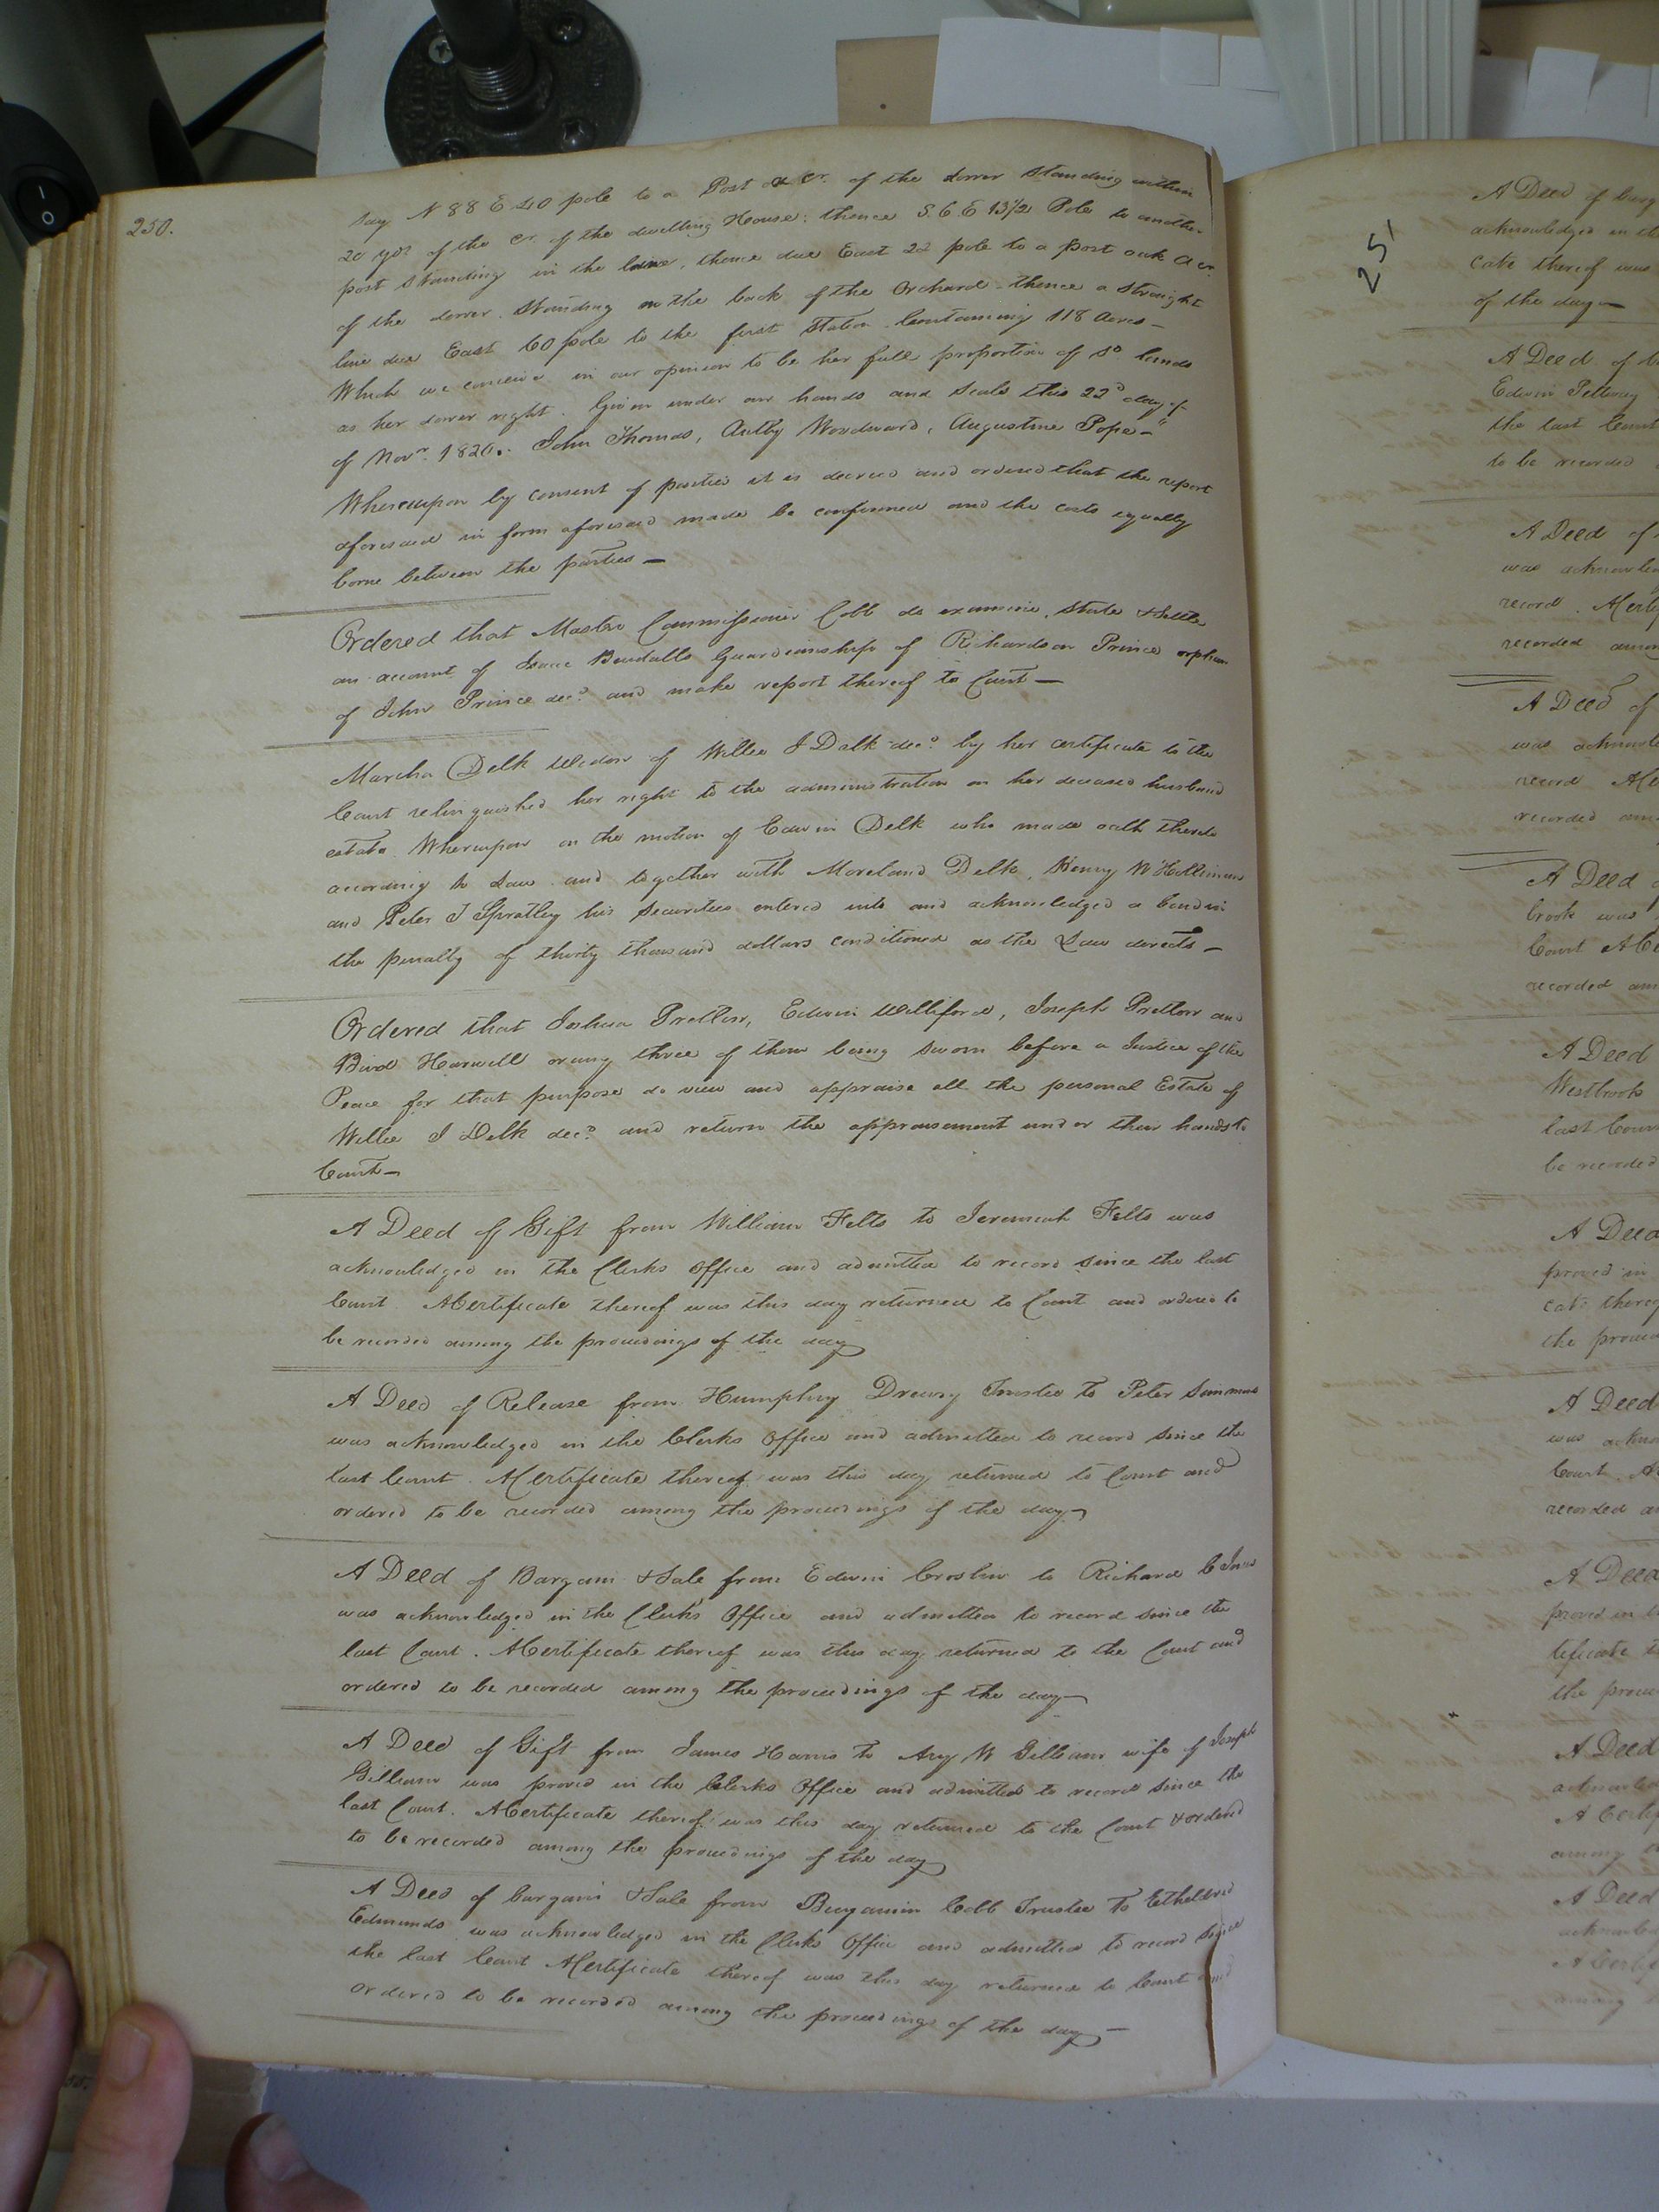 250.
say N 88 E 40 pole to a Post a cr. of the dower standing within
20 yds of the cr. of the dwelling House; thence S. 6 E 13½ Pole to another
post standing in the lane, thence due East 22 pole to a post oak a cr.
of the dower. Standing on the back of the Orchard thence a straight
line due East 60 pole to the first Station. Containing 118 Acres —
Which we conceive in our opinion to be her full proportion of sd lands
as her dower right. Given under our hands and seals this 22d day of
of Novr. 1820. John Thomas, Anthy Woodward, Augustine Pope —"
Whereupon by consent of parties it is decreed and ordered that the report
aforesaid in form aforesaid made be confirmed and the costs equally
borne between the parties —
Ordered that Master Commissioner Cobb do examine, State & Settle
an account of Guardianship of Richardson Prince orphan
of John Prince decd. and make report thereof to Court —
Marcha Delk Widow of Willie J Delk decd. by her certificate to the
Court relinquished her right to the administration on her deceased husband
estate. Whereupon on the motion of Edwin Delk who made oath thereto
according to Law and together with Moreland Delk, Henry W
and Peter J Spratley his securities entered into and acknowledged a bond in
the penalty of thirty thousand dollars conditioned as the Law directs —
Ordered that Joshua Pretlow, Edwin Williford, Joseph Pretlow and
Bird Harwell or any three of them being sworn before a Justice of the
Peace for that purpose do view and appraise all the personal Estate of
Willie J Delk decd. and return the appraisement under their hands to
Court —
A Deed of Gift from William Felts to Jeremiah Felts was
acknowledged in the Clerks Office and admitted to record since the last
Court. A Certificate thereof was this day returned to Court and ordered to
be recorded among the proceedings of the day
A Deed of Release from Humphry Drewry Trustee to Peter Simmons
was acknowledged in the Clerks Office and admitted to record since the
last Court. A Certificate thereof was this day returned to Court and
ordered to be recorded among the proceedings of the day —
A Deed of Bargain & Sale from Edwin to Richard C
was acknowledged in the Clerks Office and admitted to record since the
last Court. A Certificate thereof was this day returned to the Court and
ordered to be recorded among the proceedings of the day —
A Deed of Gift from James Harris to Arry W Gilliam wife of Joseph
Gilliam was proved in the Clerks Office and admitted to record since the
last Court. A Certificate thereof was this day returned to the Court & ordered
to be recorded among the proceedings of the day
A Deed of bargain & Sale from Benjamin Cobb Trustee to Etheldred
Edmunds was acknowledged in the Clerks Office and admitted to record since
the last Court A Certificate thereof was this day returned to Court and
ordered to be recorded among the proceedings of the day —
251
A Deed of barg
acknowledged in the
cate thereof was
of the day —
A Deed of b
Edwin
the last Court
to be recorded
A Deed of
was acknowled
record. A Certif
recorded among
A Deed of
was acknowle
record A Ce
recorded am
A Deed
brook was
Court A Ce
recorded am
A Deed
Westbrook
last Cour
be recorded
A Deed
proved in
cate thereof
the procee
A Deed
was ackno
Court. A
recorded a
A Deed
proved in
tificate t
the procee
A Deed
acknow
A Certif
among
A Deed
acknowle
A Certif
among